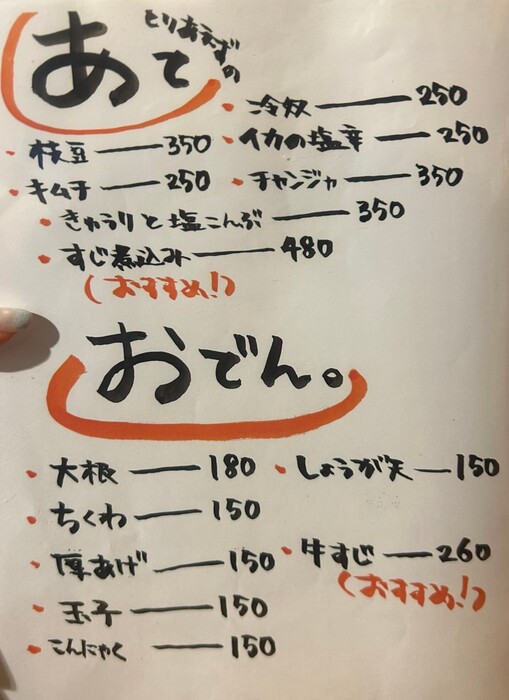 とりあえずの
あて
・冷奴 ── 250
・枝豆 ── 350 ・イカの塩辛 ── 250
・キムチ ── 250 ・チャンジャ ── 350
・きゅうりと塩こんぶ ── 350
・すじ煮込み ── 480
(おすすめ!)
おでん。
・大根 ── 180 ・しょうが天 ── 150
・ちくわ ── 150
・厚あげ ── 150 ・牛すじ ── 260
(おすすめ!)
・玉子 ── 150
・こんにゃく ── 150